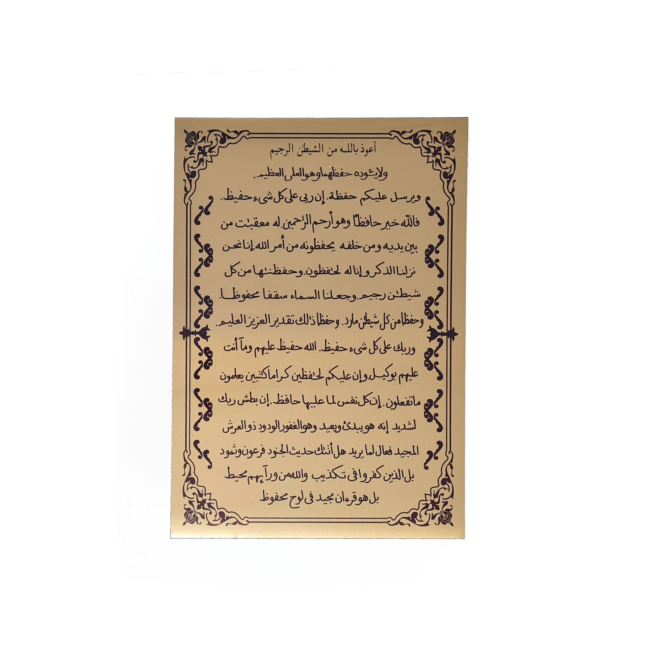 أعوذ بالله من الشيطن الرجيم
ولا يئوده حفظهما وهو العلى العظيم.
ويرسل عليكم حفظة. إن ربى على كل شىء حفيظ.
فالله خير حافظا وهو أرحم الرّٰحمين. له معقبٰت من
بين يديه ومن خلفه يحفظونه من أمر الله. إنا نحن
نزلنا الذكر وإنا له لحٰفظون. وحفظنٰها من كل
شيطٰن رجيم. وجعلنا السماء سقفا محفوظا.
وحفظا من كل شيطٰن مارد. وحفظا ذٰلك تقدير العزيز العليم.
وربك على كل شىء حفيظ. الله حفيظ عليهم وما أنت
عليهم بوكيل. وإن عليكم لحٰفظين كراما كٰتبين يعلمون
ما تفعلون. إن كل نفس لما عليها حافظ. إن بطش ربك
لشديد إنه هو يبدئ ويعيد وهو الغفور الودود ذو العرش
المجيد فعال لما يريد هل أتٰك حديث الجنود فرعون وثمود
بل الذين كفروا فى تكذيب والله من ورآئهم محيط
بل هو قرءان مجيد فى لوح محفوظ